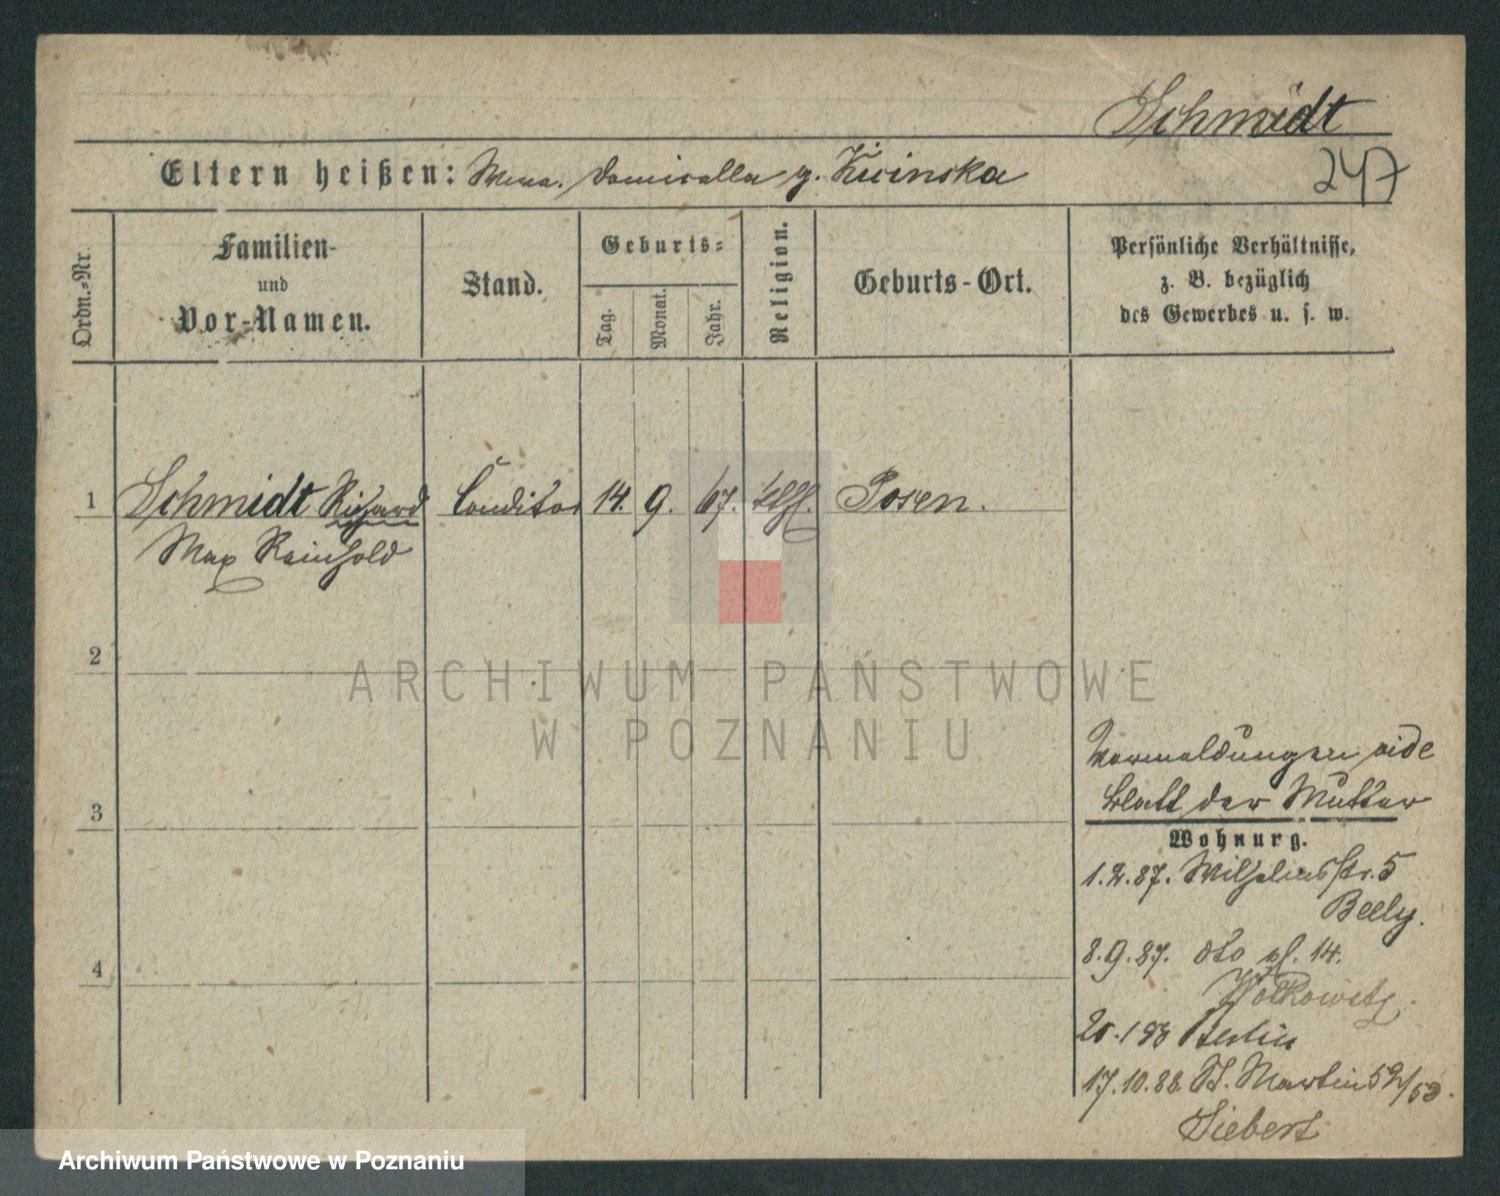 Schmidt
247
Eltern heißen: Domicella g. Kicinska
Ordn.-Nr.
Familien-
und
Vor-Namen.
Stand.
Geburts-
Tag.
Monat.
Jahr.
Religion.
Geburts-Ort.
Persönliche Verhältnisse,
z. B. bezüglich
des Gewerbes u. s. w.
1 Schmidt Richard Conditor 14. 9. 67. kthl. Posen.
Max Reinhold
2
ARCHIWUM PAŃSTWOWE
W POZNANIU
3
4
Vermeldungen vide
Blatt der Mutter
Wohnung.
1.2.87. Wilhelmsstr. 5
Beely.
8.9.87. dto pl. 14.
Wolkowitz.
Berlin
17.10.88. St. Martin 52/53.
Siebert
Archiwum Państwowe w Poznaniu